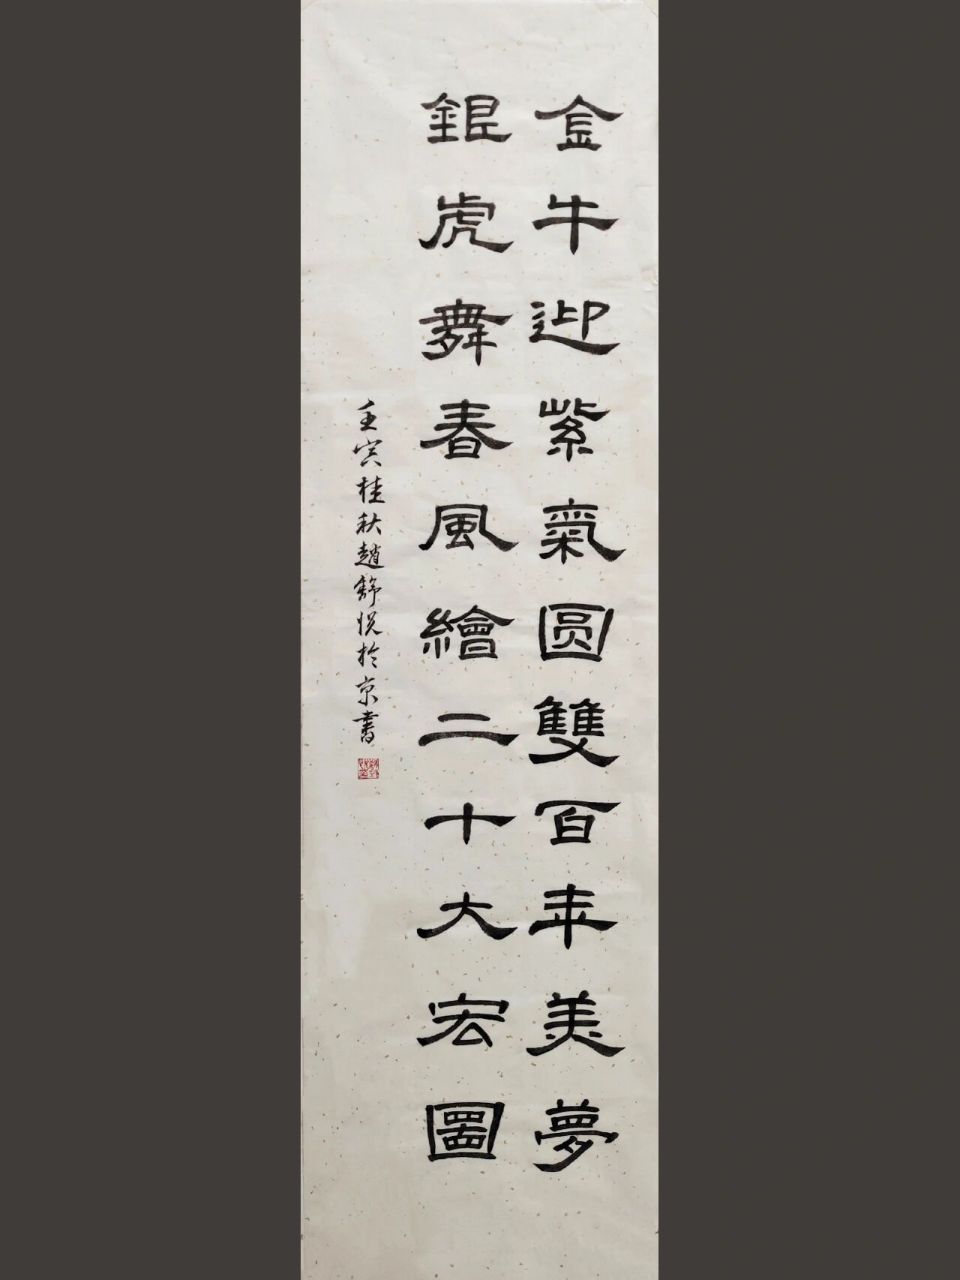 金牛迎紫氣圆雙百年美夢
銀虎舞春風繪二十大宏圖
壬寅桂秋趙舒悦於京書